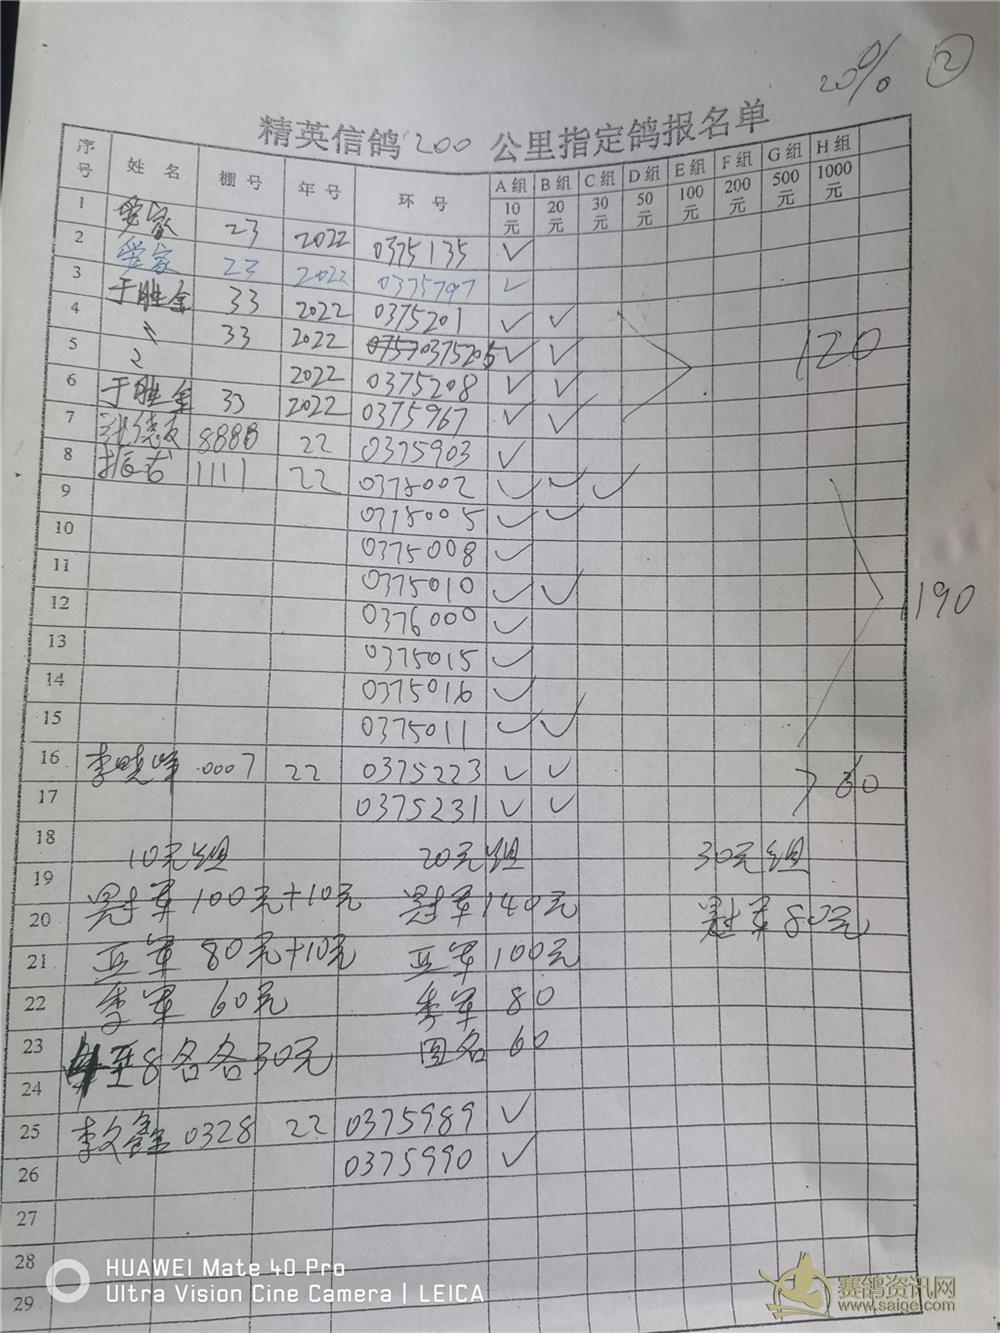 20% ②
精英信鸽 200 公里指定鸽报名单
序号 姓 名 棚 号 年 号 环 号 A组 10元 B组 20元 C组 30元 D组 50元 E组 100元 F组 200元 G组 500元 H组 1000元
1 爱家 23 2022 0375135 ✓
2 爱家 23 2022 0375797 ✓
3 于胜金 33 2022 0375201 ✓ ✓
4 〃 33 2022 0375205 ✓ ✓ 120
5 2022 0375208 ✓ ✓
6 于胜金 33 2022 0375967 ✓ ✓
7 张德友 8888 22 0375903 ✓
8 振芳 1111 22 0375002 ✓ ✓ ✓
9 0375005 ✓ ✓
10 0375008 ✓
11 0375010 ✓ ✓ 190
12 0376000 ✓
13 0375015 ✓
14 0375016 ✓
15 0375011 ✓ ✓
16 李晓峰 0007 22 0375223 ✓ ✓ 60
17 0375231 ✓ ✓
18 10元组 20元组 30元组
19 冠军 100元+10元 冠军 140元 冠军 80元
20 亚军 80元+10元 亚军 100元
21 季军 60元 季军 80
22 至8名各30元 四名 60
23
24
25 李文鑫 0328 22 0375989 ✓
26 0375990 ✓
27
28
29
HUAWEI Mate 40 Pro
Ultra Vision Cine Camera | LEICA
赛鸽资讯网
www.saige.com